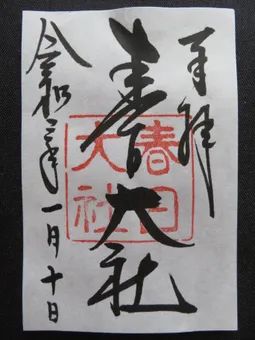 奉拝
春日大社
令和二年一月十日
春日大社